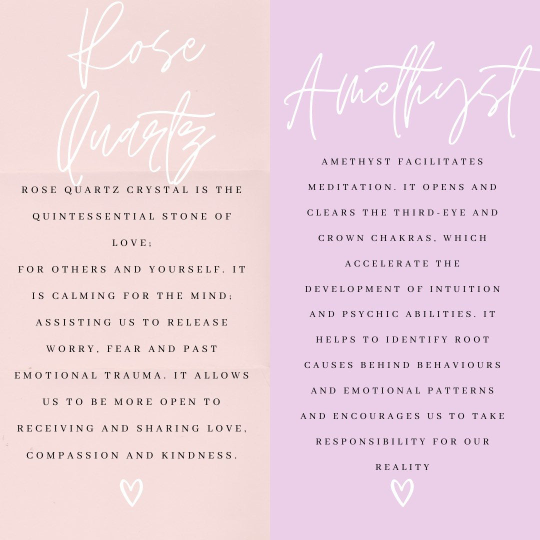 Rose
Quartz
ROSE QUARTZ CRYSTAL IS THE
QUINTESSENTIAL STONE OF
LOVE;
FOR OTHERS AND YOURSELF. IT
IS CALMING FOR THE MIND;
ASSISTING US TO RELEASE
WORRY, FEAR AND PAST
EMOTIONAL TRAUMA. IT ALLOWS
US TO BE MORE OPEN TO
RECEIVING AND SHARING LOVE,
COMPASSION AND KINDNESS.
Amethyst
AMETHYST FACILITATES
MEDITATION. IT OPENS AND
CLEARS THE THIRD-EYE AND
CROWN CHAKRAS, WHICH
ACCELERATE THE
DEVELOPMENT OF INTUITION
AND PSYCHIC ABILITIES. IT
HELPS TO IDENTIFY ROOT
CAUSES BEHIND BEHAVIOURS
AND EMOTIONAL PATTERNS
AND ENCOURAGES US TO TAKE
RESPONSIBILITY FOR OUR
REALITY